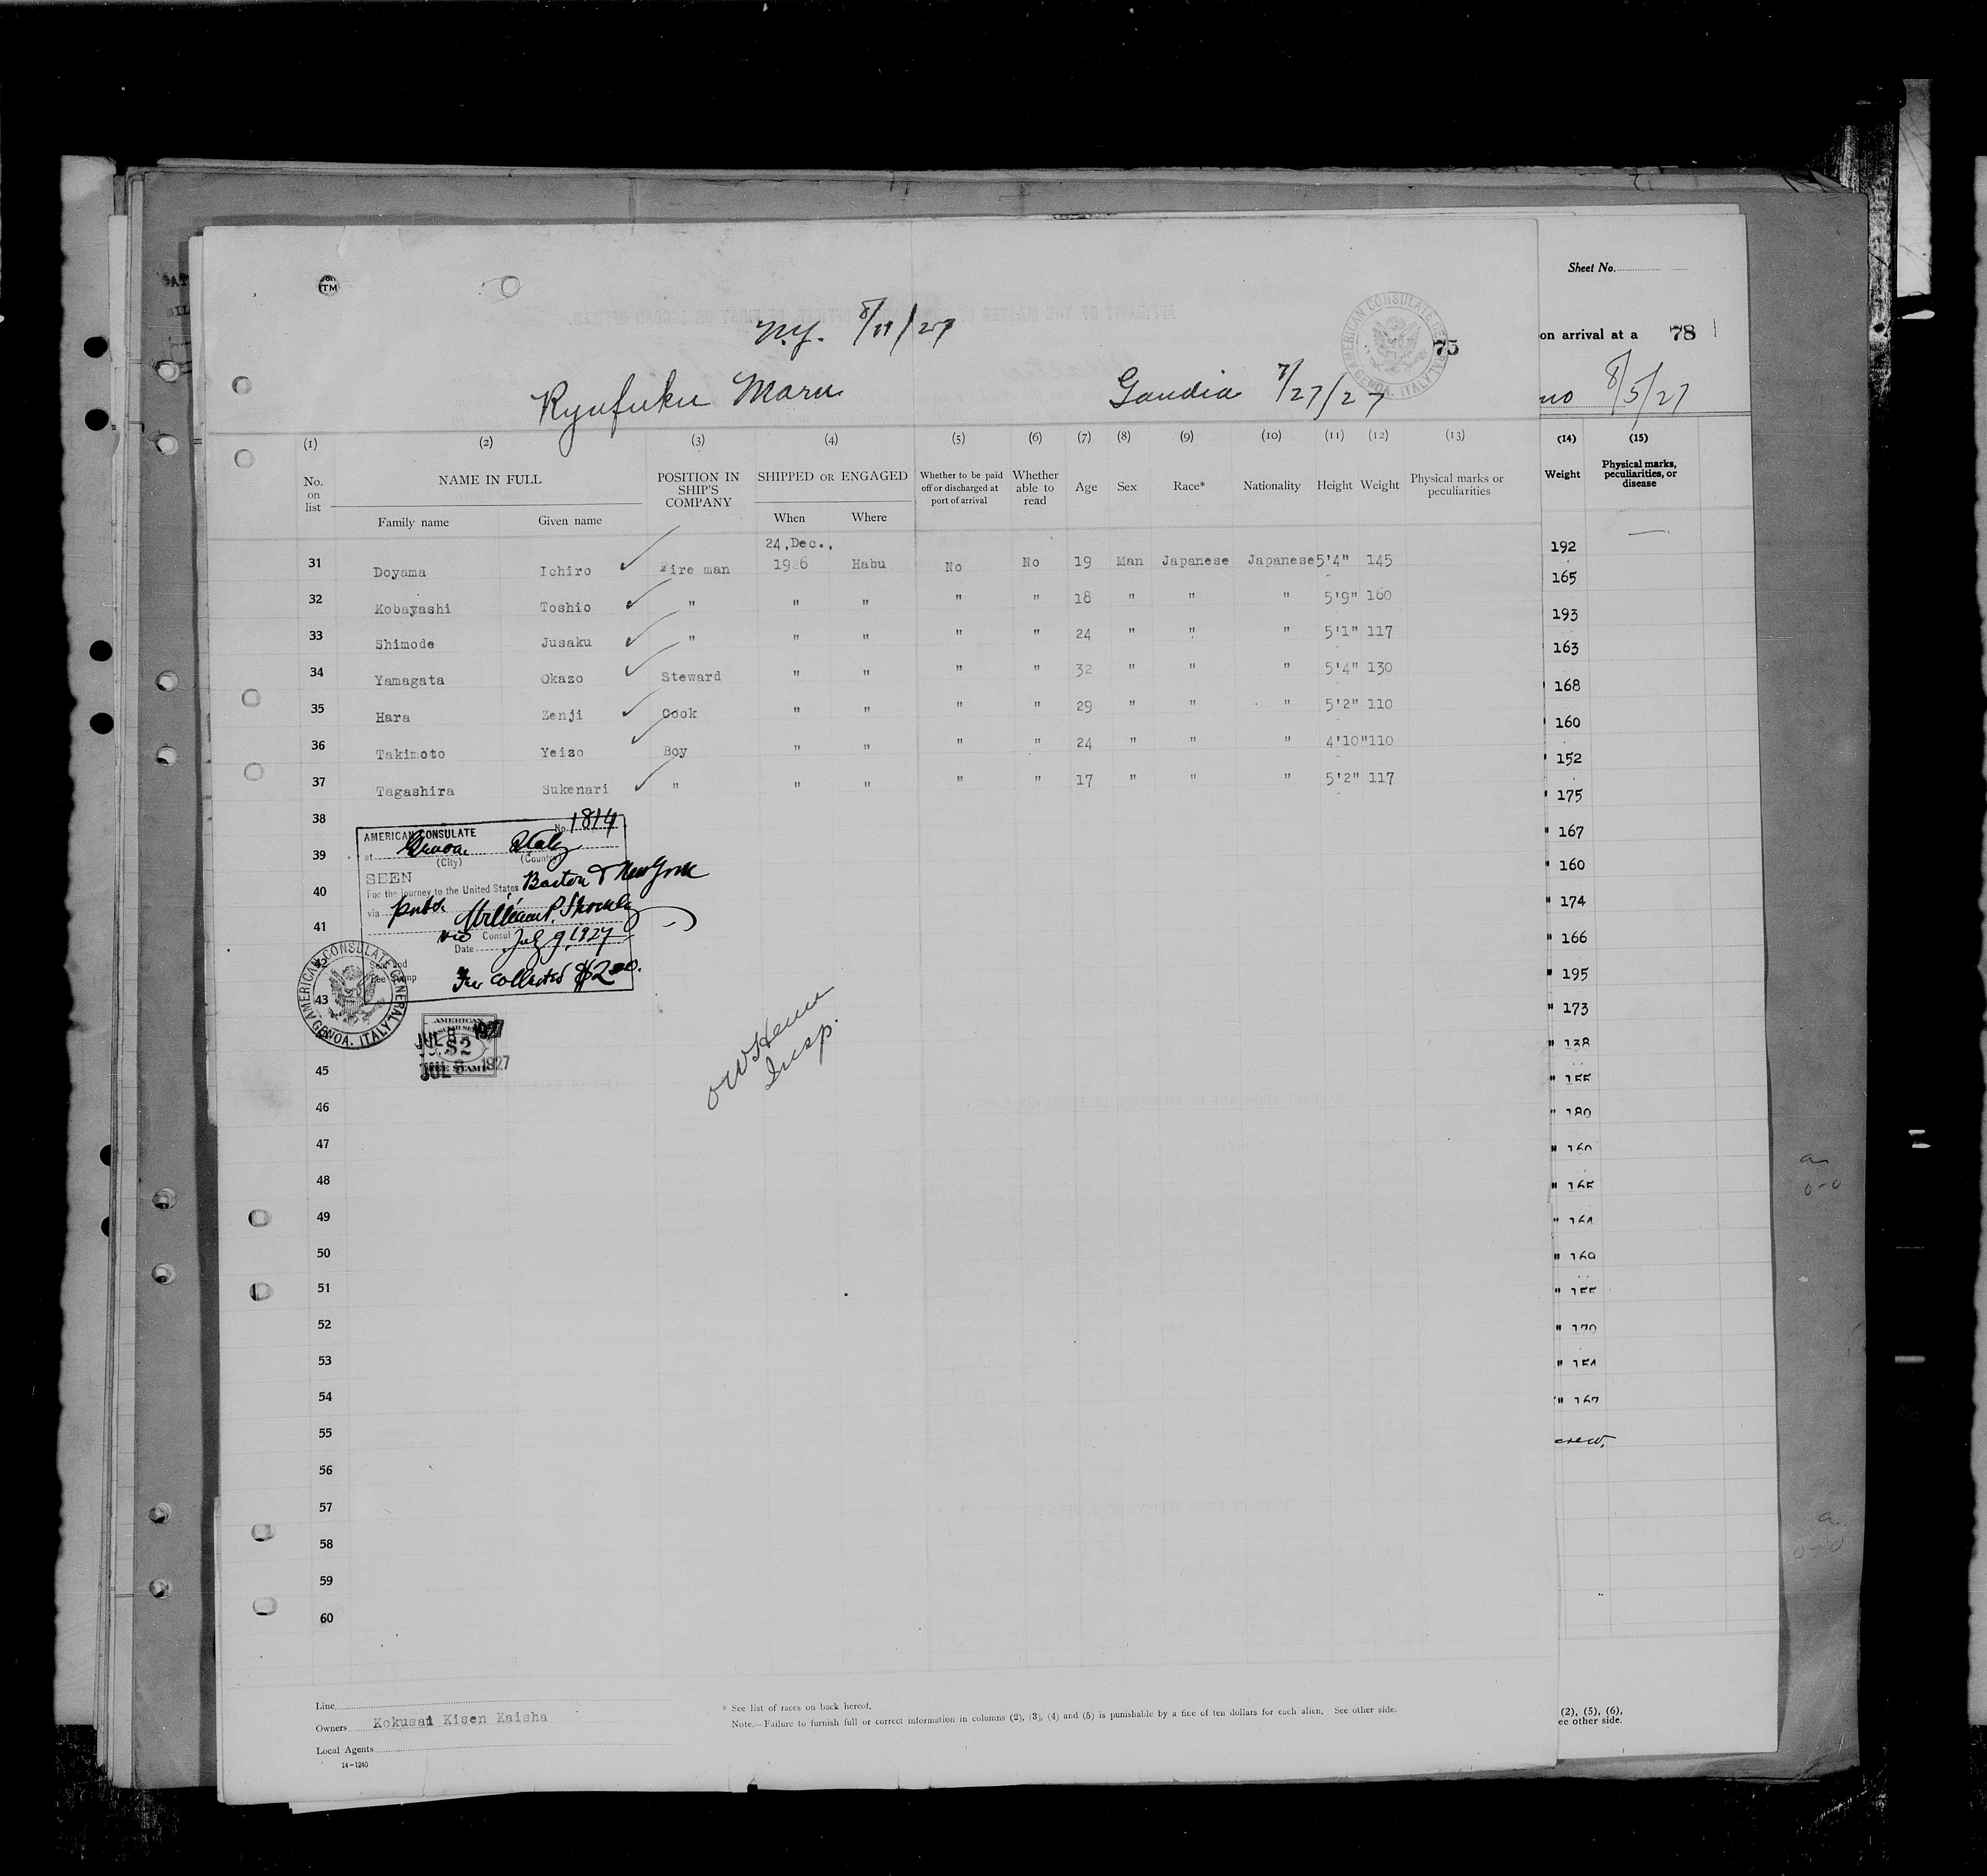 TM
N.Y. 8/11/27
AMERICAN CONSULATE GENERAL
GENOA, ITALY
75
Ryufuku Maru
Gandia 7/27/27
(1) (2) (3) (4) (5) (6) (7) (8) (9) (10) (11) (12) (13)
No. on list
NAME IN FULL
Family name Given name
POSITION IN SHIP'S COMPANY
SHIPPED OR ENGAGED
When Where
Whether to be paid off or discharged at port of arrival
Whether able to read
Age Sex Race* Nationality Height Weight Physical marks or peculiarities
24,Dec.,
31 Doyama Ichiro Fire man 1926 Habu No No 19 Man Japanese Japanese 5'4" 145
32 Kobayashi Toshio " " " " " 18 " " " 5'9" 160
33 Shimode Jusaku " " " " " 24 " " " 5'1" 117
34 Yamagata Okazo Steward " " " " 32 " " " 5'4" 130
35 Hara Zenji Cook " " " " 29 " " " 5'2" 110
36 Takimoto Yeizo Boy " " " " 24 " " " 4'10" 110
37 Tagashira Sukenari " " " " " 17 " " " 5'2" 117
38
39
40
41
42
43
45
46
47
48
49
50
51
52
53
54
55
56
57
58
59
60
AMERICAN CONSULATE No. 1814
at Genoa Italy
(City) (Country)
SEEN
For the journey to the United States Boston & New York
via ports
Vice Consul
Date July 9, 1927
Seal and
Fee Stamp
Fee collected $2.00.
AMERICAN CONSULATE GENERAL
GENOA, ITALY
AMERICAN
JUL 8 1927
$2
FEE STAMP
JUL 8 1927
Insp.
Line
Owners Kokusai Kisen Kaisha
Local Agents
14-1240
* See list of races on back hereof.
Note.—Failure to furnish full or correct information in columns (2), (3), (4) and (5) is punishable by a fine of ten dollars for each alien. See other side.
Sheet No.
on arrival at a 78
no 8/5/27
(14) (15)
Weight
Physical marks, peculiarities, or disease
192
165
193
163
" 168
" 160
" 152
" 175
" 167
" 160
" 174
" 166
" 195
" 173
" 138
" 155
" 180
" 160
" 165
" 164
" 169
" 155
" 170
" 154
" 167
crew.
(2), (5), (6),
ee other side.